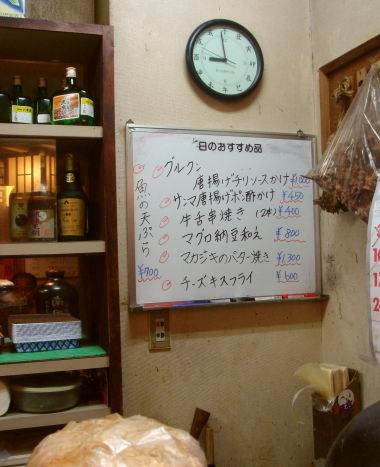 本日のおすすめ品
グルクン
唐揚げチリソースかけ ¥1000
サンマ唐揚げポン酢かけ ¥450
牛舌串焼き (2本) ¥400
マグロ納豆和え ¥800
マカジキのバター焼き ¥1300
チーズキスフライ ¥600
魚の天ぷら
¥700